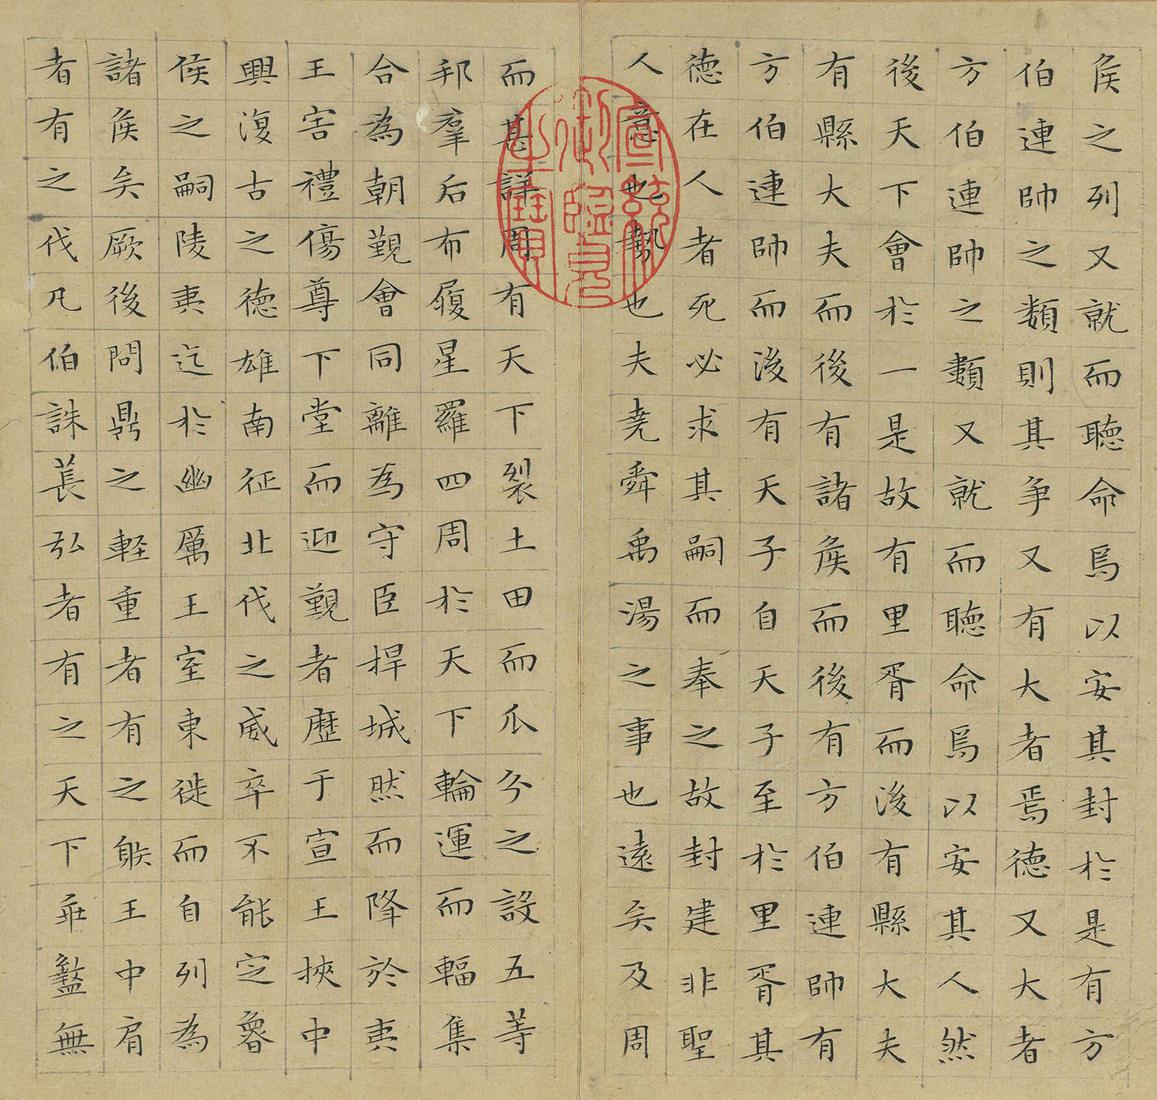 侯之列又就而聽命焉以安其封於是有方
伯連帥之類則其争又有大者焉德又大者
方伯連帥之類又就而聽命焉以安其人然
後天下會於一是故有里胥而後有縣大夫
有縣大夫而後有諸侯而後有方伯連帥有
方伯連帥而後有天子自天子至於里胥其
德在人者死必求其嗣而奉之故封建非聖
人意也勢也夫堯舜禹湯之事也遠矣及周
而甚詳周有天下裂土田而瓜分之設五等
邦羣后布履星羅四周於天下輪運而輻集
合為朝覲會同離為守臣捍城然而降於夷
王害禮傷尊下堂而迎覲者歷于宣王挾中
興復古之德雄南征北伐之威卒不能定魯
侯之嗣陵夷迄於幽厲王室東徙而自列為
諸侯矣厥後問鼎之軽重者有之射王中肩
者有之伐凡伯誅萇弘者有之天下乖盭無
宣統御覽之寶